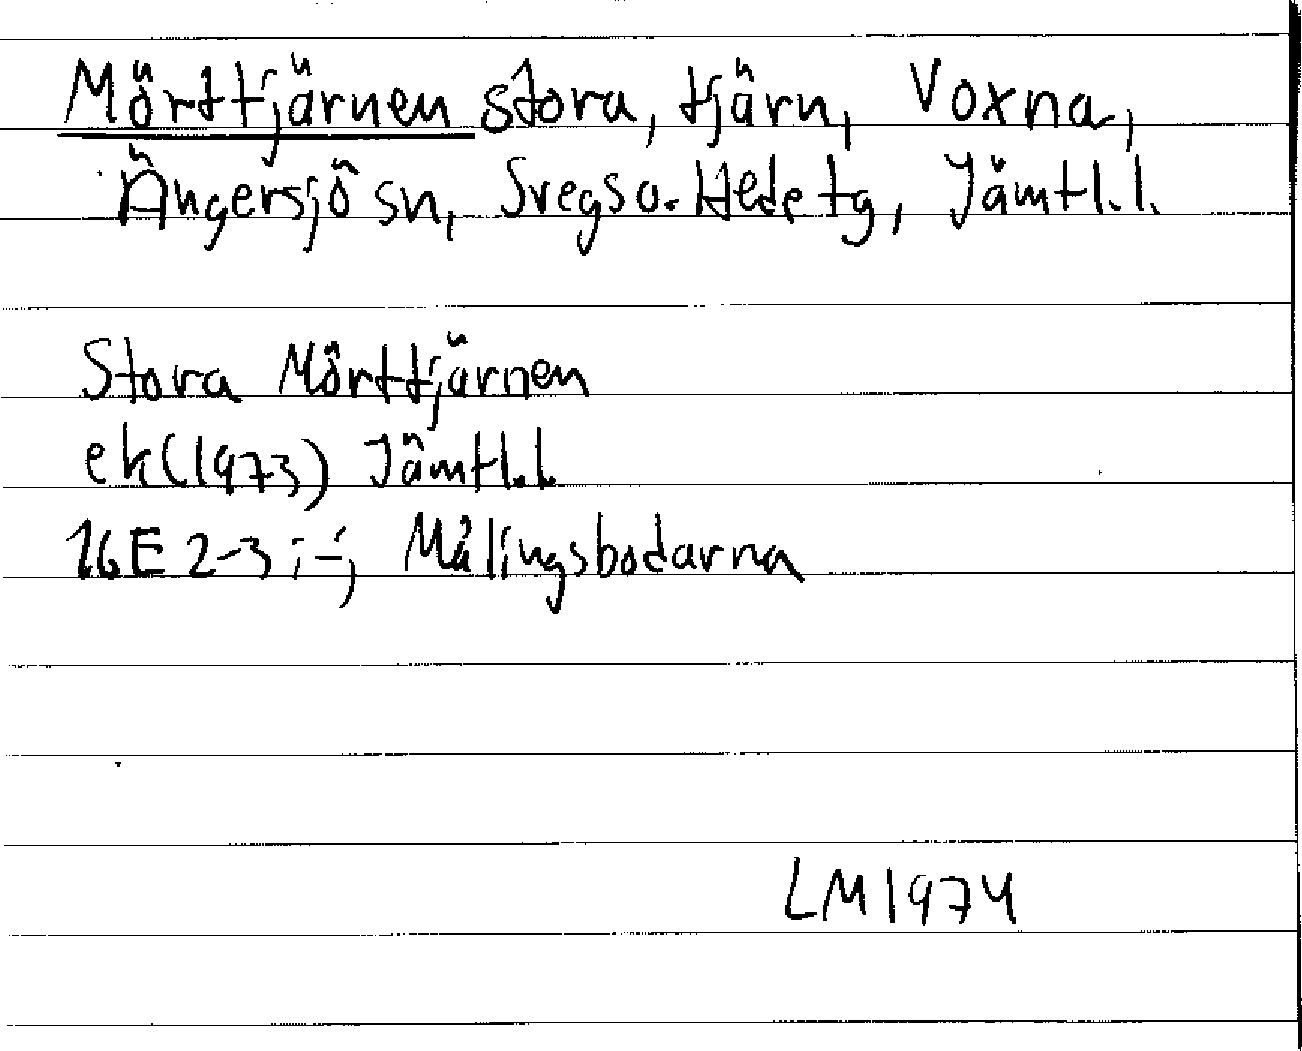 Mörttjärnen stora, tjärn, Voxna,
Ängersjö sn, Svegs o. Hede tg, Jämtl.l.
Stora Mörttjärnen
ek(1973) Jämtl.l.
16E 2-3 i-j Målingsbodarna
LM 1974